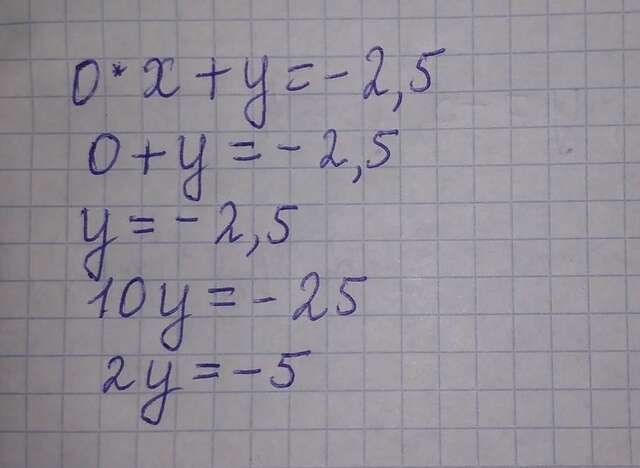 0*x+y=-2,5
0+y=-2,5
y=-2,5
10y=-25
2y=-5